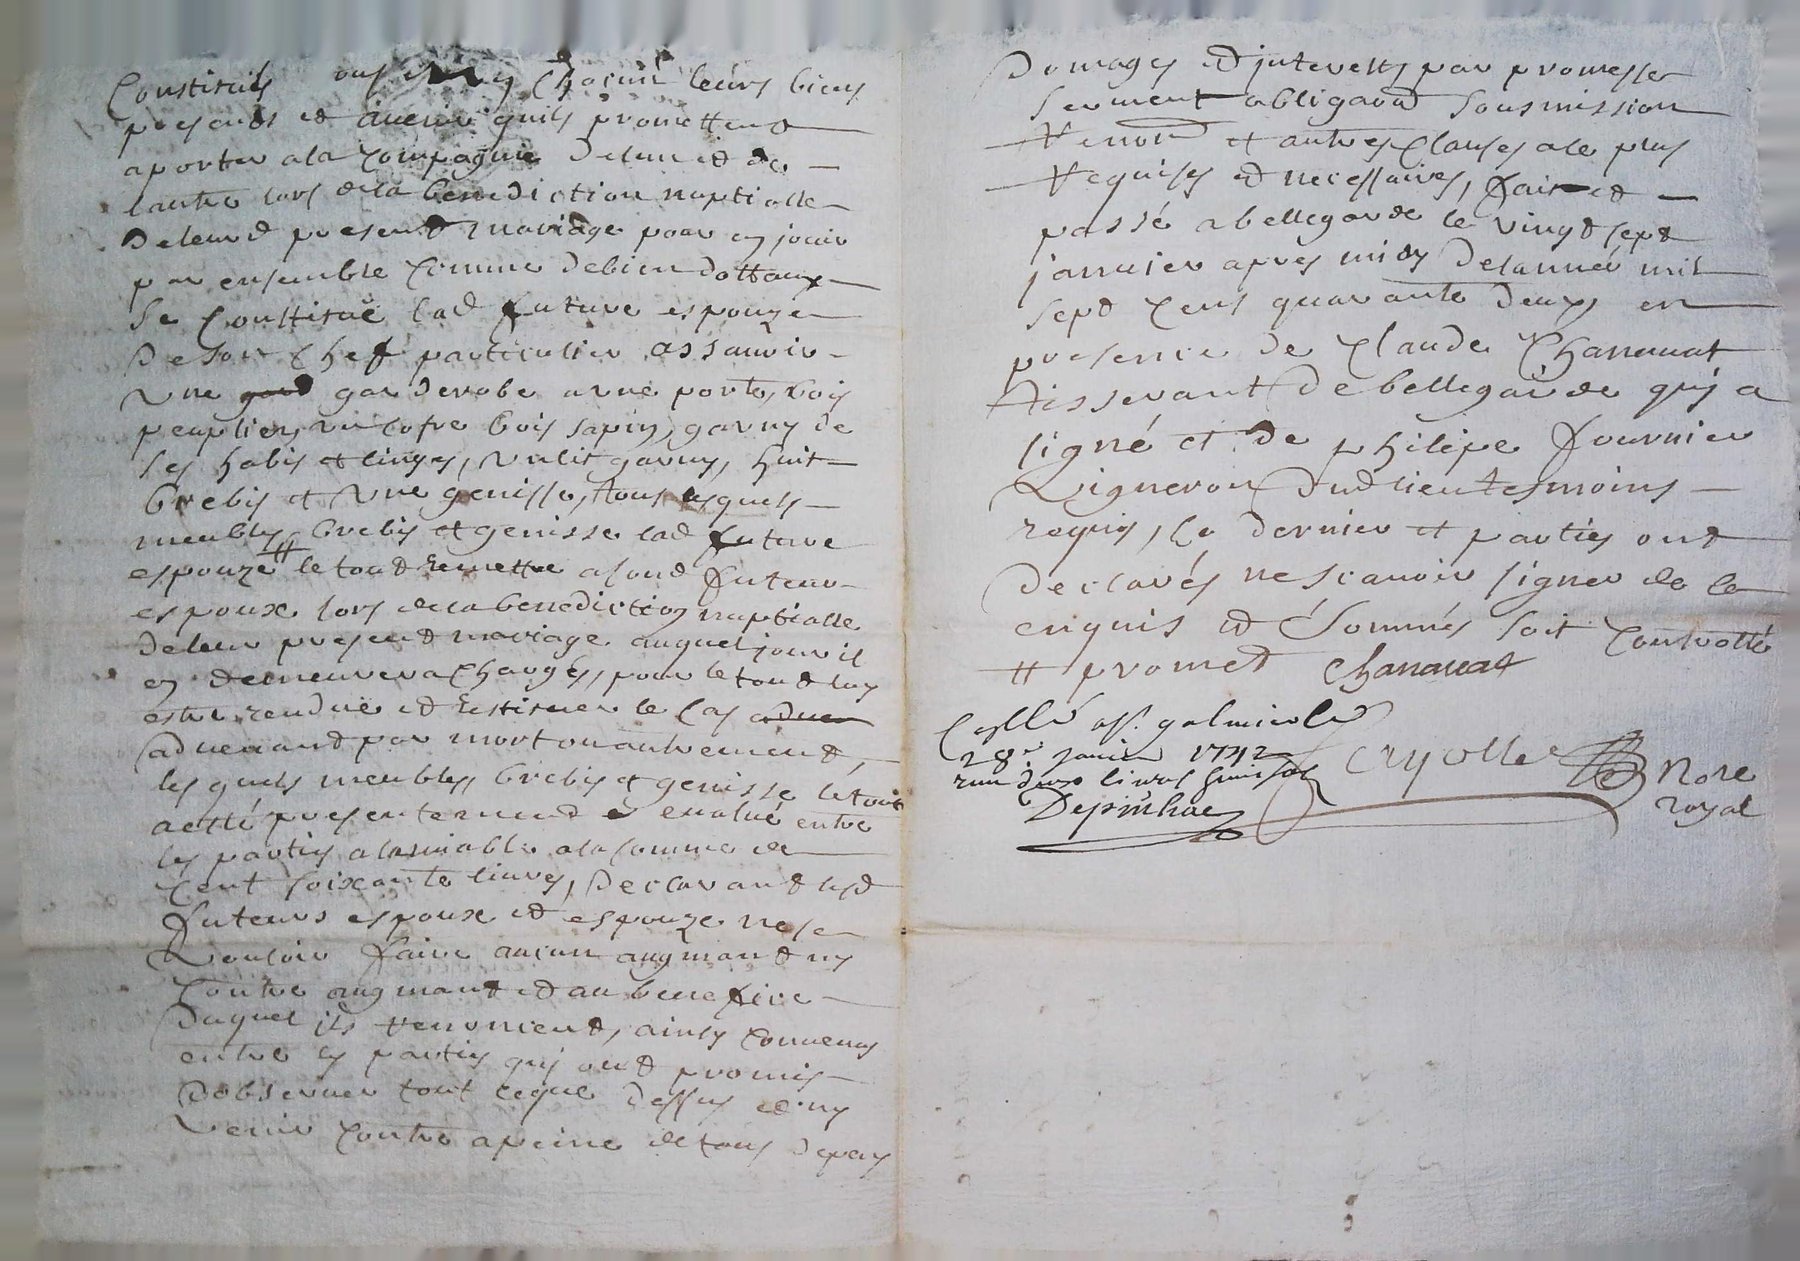 Constitués chacun leurs biens
presents et avenir quils promettent
aporter a la compagnie de lun et de
lautre lors de la benediction nuptialle
de leurd present mariage pour en jouir
par ensemble comme de bien dottaux
se constitue lad future espouze
de son chef particulier assauoir
une gard garderobe a une porte, bois
peuplier, un cofre bois sapin, garny de
ses habis et linges, un lit garny, huit
brebis et une genisse, tous lesquels
meubles, brebis et genisse lad future
espouze # le tout remettre a sond futeur
espoux lors de la benediction nuptialle
de leur present mariage auquel jour il
en demeurera chargé, pour le tout luy
estre rendue et restituer le cas aduen
aduenant par mort ou autrement,
les quels meubles, brebis et genisse le tout
a esté presentement evalué entre
les parties a lamiable a la somme de
cent soixante liures, Declarant lesd
futeurs espoux et espouze ne se
vouloir faire aucun augmant ny
contre augmant et au benefice
duquel ils renoncent, ainsy conuenu
entre les parties quj ont promis
dobseruer tout ceque dessus et ny
venir contre a peine de tous depens
Domages et jnterests, par promesse
serment obligaõn sousmission
renonõn et autres clauses a le plus
requises et necessaires, fait et
passé a bellegarde le vingt sept
januier apres midy de lannée mil
sept cens quarante deux en
presence de Claude Chanauat
tisserant de bellegarde quj a
signé et de philipe fournier
Vigneron dud lieu tesmoins
requis, le dernier et parties ont
declarés ne scauoir signer de ce
enquis et sommés soit controllé
# promet Chanauat
Collé a S. galmier le
28e janvier 1742
deux livres
Cryolle Nore
royal